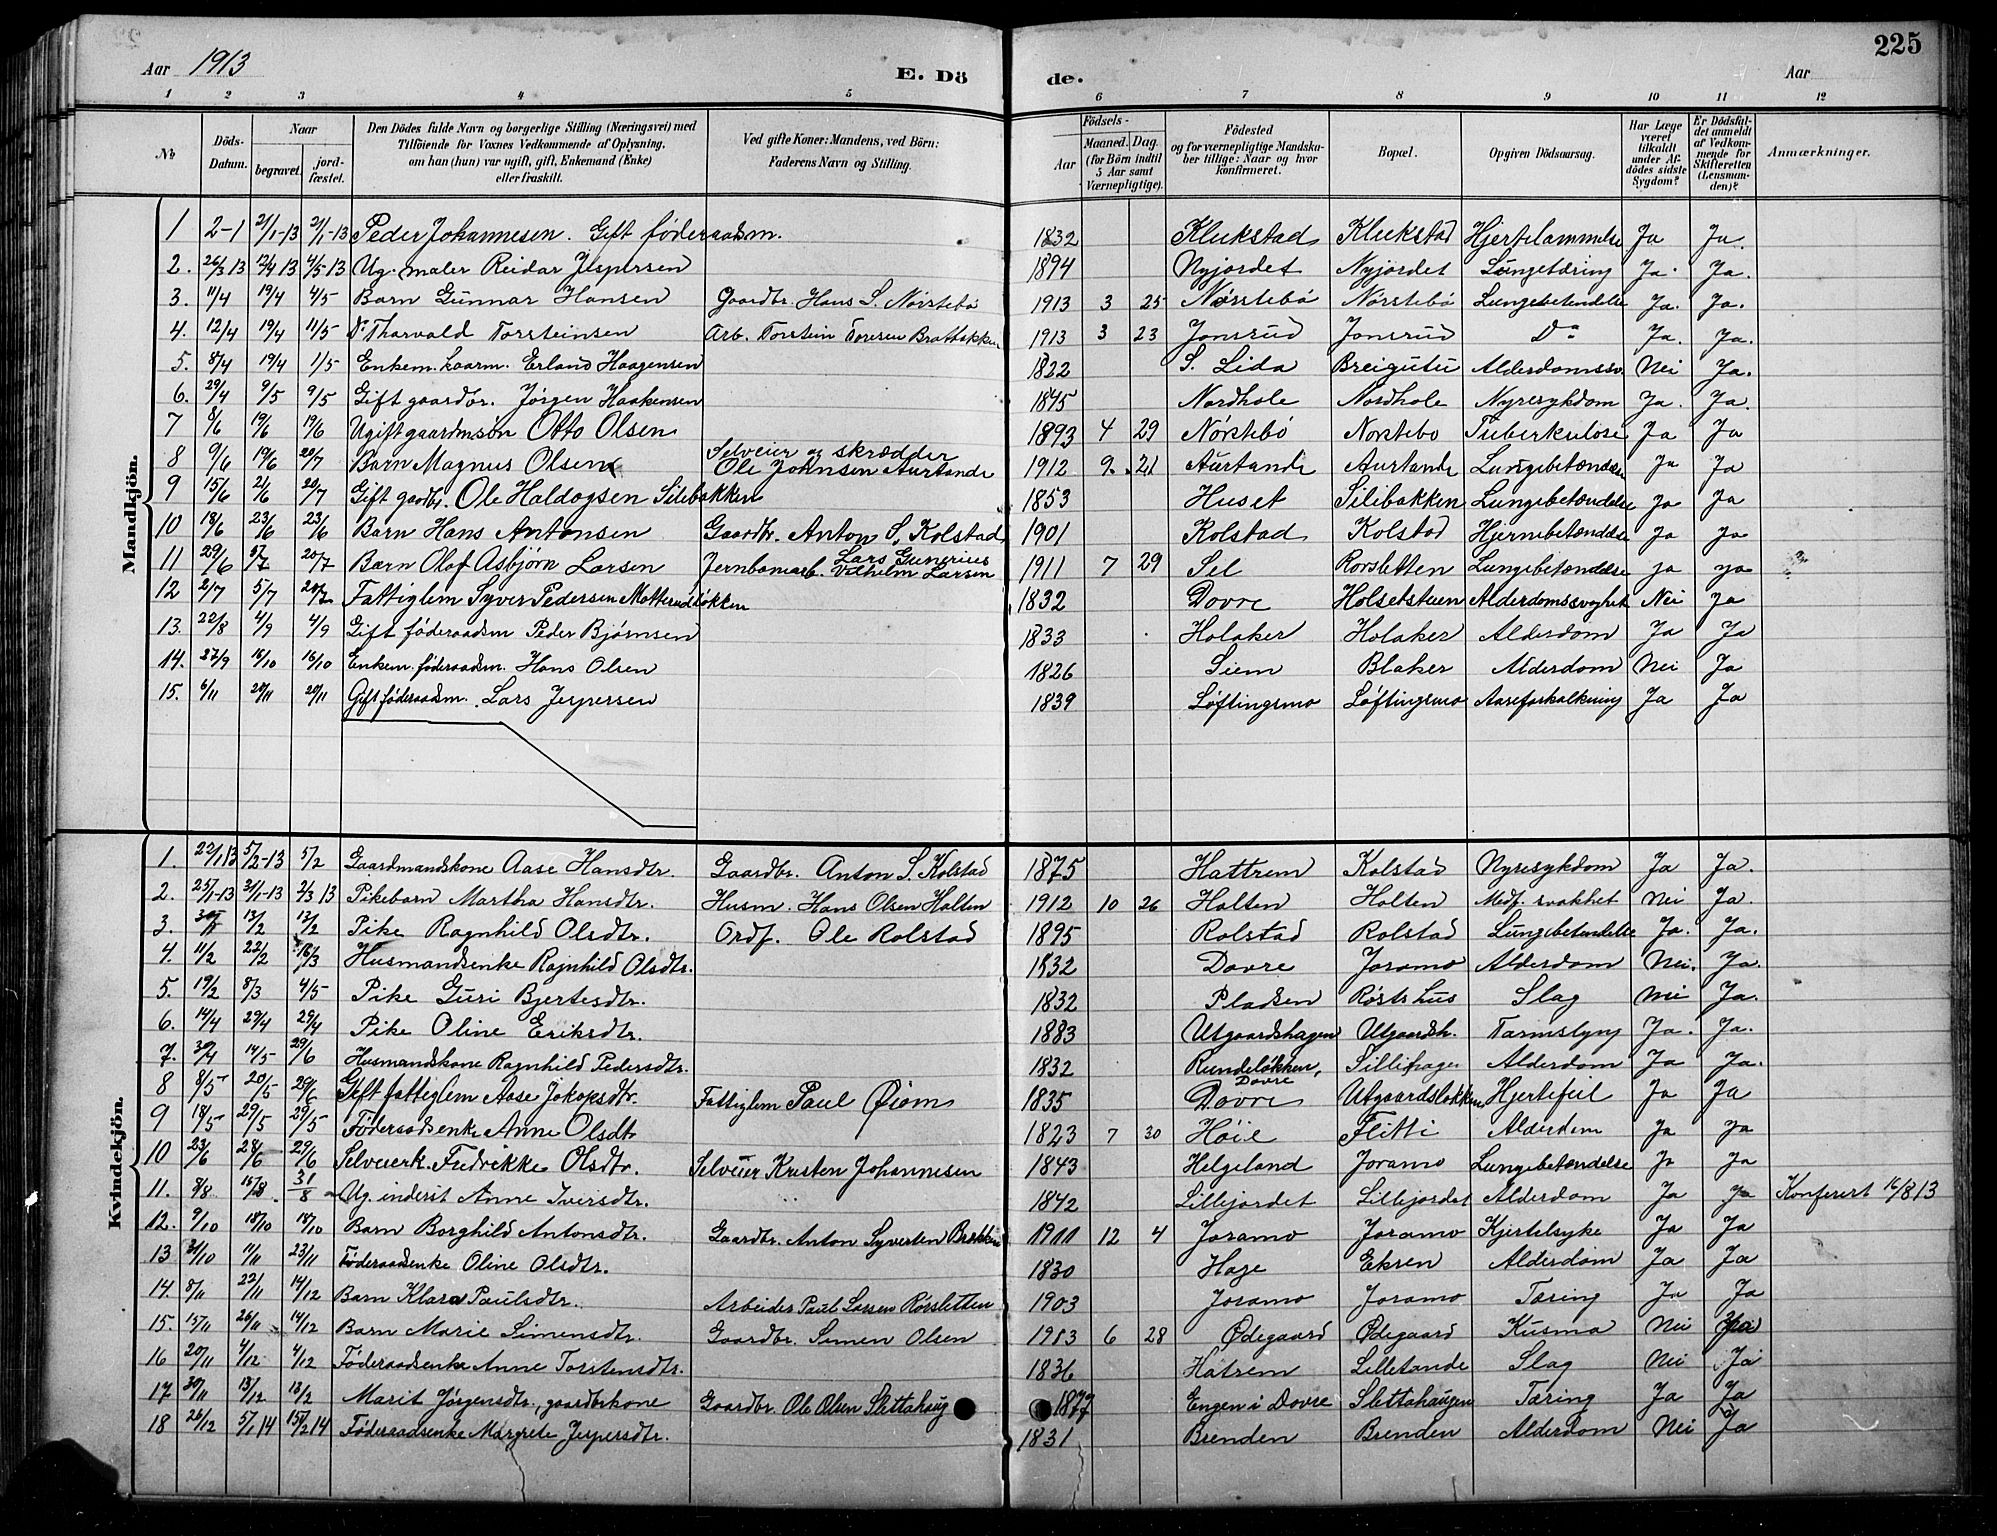 225
Aar 1913 E. Dö de. Aar
1 2 3 4 5 6 7 8 9 10 11 12
No
Döds-Datum.
Naar
begravet.
jordfæstet.
Den Dödes fulde Navn og borgerlige Stilling (Næringsvei) med Tilföiende for Voxnes Vedkommende af Oplysning, om han (hun) var ugift, gift, Enkemand (Enke) eller fraskilt.
Ved gifte Koner: Mandens, ved Börn: Faderens Navn og Stilling.
Födsels-
Aar
Maaned. Dag.
(for Börn indtil 5 Aar samt Værnepligtige).
Födested og for værnepligtige Mandskaber tillige: Naar og hvor konfirmeret.
Bopæl.
Opgiven Dödsaarsag.
Har Læge været tilkaldt under Afdödes sidste Sygdom?
Er Dödsfaldet anmeldt af Vedkommende for Skifteretten (Lensmanden)?
Anmærkninger.
Mandkjön.
1 2-1 21/1-13 21/1-13 Peder Johannesen. Gift föderaadsm. 1832 Klukstad Klukstad Hjertelammelse Ja Ja.
2. 26/3 13 12/4 13 4/5 13 Ug. maler Reidar Jespersen 1894 Nyjordet Nyjordet Lungetæring Ja. Ja.
3. 11/4 19/4 4/5 Barn Gunnar Hansen Gaardbr. Hans S. Nörstebö 1913 3 25 Nörstebö Nörstebö Lungebetendelse Ja. Ja.
4. 12/4 19/4 11/5 Do Thorvald Torsteinsen Arb. Torstein Toresen Brattekken 1913 3 23 Jonsrud Jonsrud Do Ja. Ja.
5. 8/4 19/4 1/5 Enkem. kaarm. Erland Haagensen 1822 S. Lida Breigutu Alderdomssv. Nei Ja.
6. 29/4 9/5 9/5 Gift gaardbr. Jörgen Haakensen 1845 Nordhole Nordhole Nyresykdom Ja. Ja.
7 8/6 19/6 19/6 Ugift gaardmsön Otto Olsen 1893 4 29 Nörstebö Norstebo Tuberkulose Ja Ja
8 9/6 19/6 20/7 Barn Magnus Olsen Selveier og skrædder Ole Johnsen Aurtande 1912 9. 21 Aurtande Aurtande Lungebetændelse Ja Ja
9 15/6 21/6 20/7 Gift gaardbr. Ole Haldogsen Silibakken 1853 Huset Silibakken Lungebetændelse Ja Ja
10 18/6 23/6 23/6 Barn Hans Antonsen Gaardbr. Anton S. Kolstad 1901 Kolstad Kolstad Hjernebetændelse Ja Ja
11 29/6 5/7 20/7 Barn Olaf Asbjörn Larsen Jernbanearb. Lars Gunerius Vilhelm Larsen 1911 7 29 Sel Rorsletten Lungebetændelse Ja ya
12 2/7 5/7 20/7 Fattiglem Syver Pedersen Motterudlökken 1832 Dovre Holsetsteen Alderdomssvaghet Nei Ja
13. 22/8 4/9 4/9 Gift föderaadsm Peder Bjørnsen 1833 Holaker Holaker Alderdom Ja Ja
14. 27/9 16/10 16/10 Enkem. föderaadsm. Hans Olsen 1826 Siem Blaker Alderdom Nei Ja
15. 6/11 20/11 20/11 Gift föderaadsm. Lars Jespersen 1839 Løftingsmo Løftingsmo Aareforkalkning Ja Ja
Kvindekjön.
1. 22/1 13 5/2-13 5/2 Gaardmandskone Aase Hansdtr. Gaardbr. Anton S. Kolstad 1875 Hattrem Kolstad Nyresykdom Ja Ja.
2. 25/1-13 31/1-13 2/3 13 Pikebarn Martha Hansdtr. Husm. Hans Olsen Holten 1912 10 26 Holten Holten Medf. svakhet Nei Ja.
3. 13/2 13/2 Pike Ragnhild Olsdtr. Ordf. Ole Rolstad 1895 Rolstad Rolstad Lungebetendelse Ja. Ja.
4. 11/2 22/2 16/3 Husmandsenke Ragnhild Olsdtr. 1832 Dovre Joramo Alderdom Nei. Ja.
5. 19/2 8/3 4/5 Pike Guri Bjertesdtr. 1832 Pladsen Røsts hus Slag Nei Ja.
6. 14/4 29/4 29/4 Pike Oline Eriksdtr. 1883 Utgaardshagen Utgaardsh. Tarmslyng Ja. Ja.
7. 30/4 14/5 29/6 Husmandskone Ragnhild Pedersdtr. 1832 Rundeløkken, Dovre Sillihagen Alderdom Ja Ja.
8 8/5 20/5 29/6 Gift fattiglem Aase Jakopsdtr. Fattiglem Paul Øiom 1835 Dovre Utgaardsløkken Hjertefeil Ja Ja
9 18/5 29/5 29/5 Föderaadsenke Anne Olsdtr 1823 7 30 Høie Flitti Alderdom Ja ya
10 23/6 28/6 29/6 Selveierk. Fredrikke Olsdtr. Selveier Kristen Johannesen 1843 Helgeland Joramo Lungebetændelse Ja Ja
11. 8/8 16/8 31/8 Ug. inderst Anne Iversdtr. 1842 Lillejordet Lillejordet Alderdom Ja Ja Konferert 16/8 13
12. 9/10 18/10 18/10 Barn Borghild Antonsdtr. Gaardbr. Anton Syverten Brekken 1911 12 4 Joramo Joramo Kjertelsyke Ja Ja
13 31/10 11/11 23/11 Föderaadsenke Oline Olsdtr. 1830 Hage Ekren Alderdom Ja Ja
14. 8/11 22/11 14/12 Barn Klara Paulsdtr. Arbeider Paul Larsen Rörsletten 1903 Joramo Joramo Tæring Ja Ja
15. 15/11 26/11 14/12 Barn Marie Simensdtr. Gaardbr. Simen Olsen 1913 6 28 Ødegaard Ødegaard Kusma Nei Ja
16 20/11 4/12 4/12 Föderaadsenke Anne Torstensdtr. 1836 Hatrem Lilletande Slag Nei Ja
17 30/11 13/12 13/2 Marit Jörgensdtr., gaardbrkone Gaardbr. Ole Olsen Slettahaug 1877 Engen i Dovre Slettahaugen Tæring Ja Ja
18 26/12 5/1 14 15/2 14 Föderaadsenke Margrete Jespersdtr. 1831 Brenden Brenden Alderdom Nei Ja